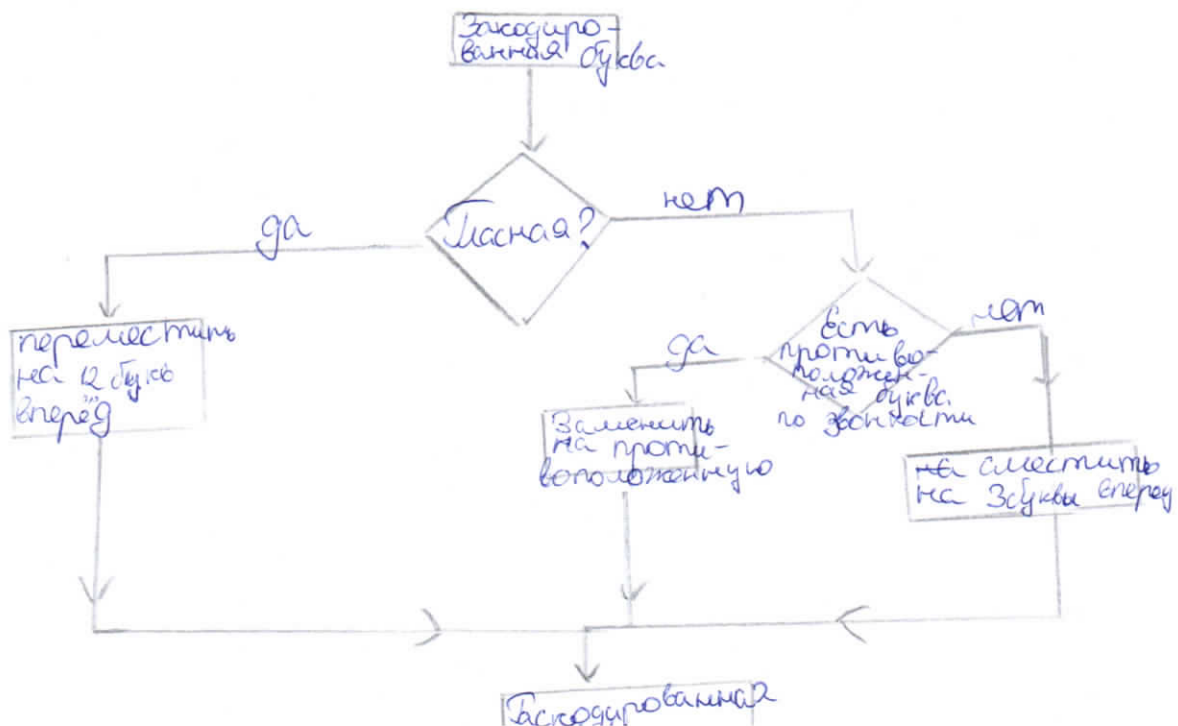 Закодиро-
ванная буква
Гласная?
да
нет
переместить
на 12 букв
вперёд
Есть
противо-
положен-
ная буква
по звонкости
да
нет
Заменить
на проти-
воположенную
на сместить
на 3 буквы вперед
Раскодированная